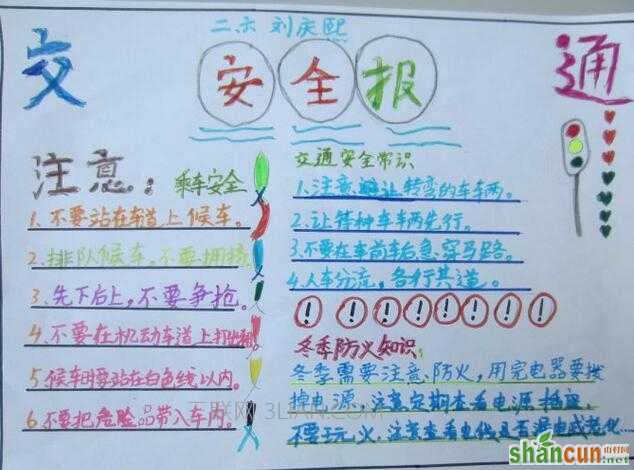 二六 刘庆熙
交 安全报 通
注意:乘车安全
1.不要站在车道上候车。
2.排队候车,不要拥挤。
3.先下后上,不要争抢。
4.不要在机动车道上打出租
5候车时要站在白色线以内。
6.不要把危险品带入车内。
交通安全常识
1.注意避让转弯的车车两。
2.让特种车车两先行。
3.不要在车前车后急穿马路。
4.人车分流,各行其道。
! ! ! ! ! ! ! !
冬季防火知识:
冬季需要注意防火,用完电器要拔
掉电源、注意定期查看电源插座,
不要玩火.注意查看电线是否漏电或老化...
互联网 3LIAN.COM
shancun
山村网
.net